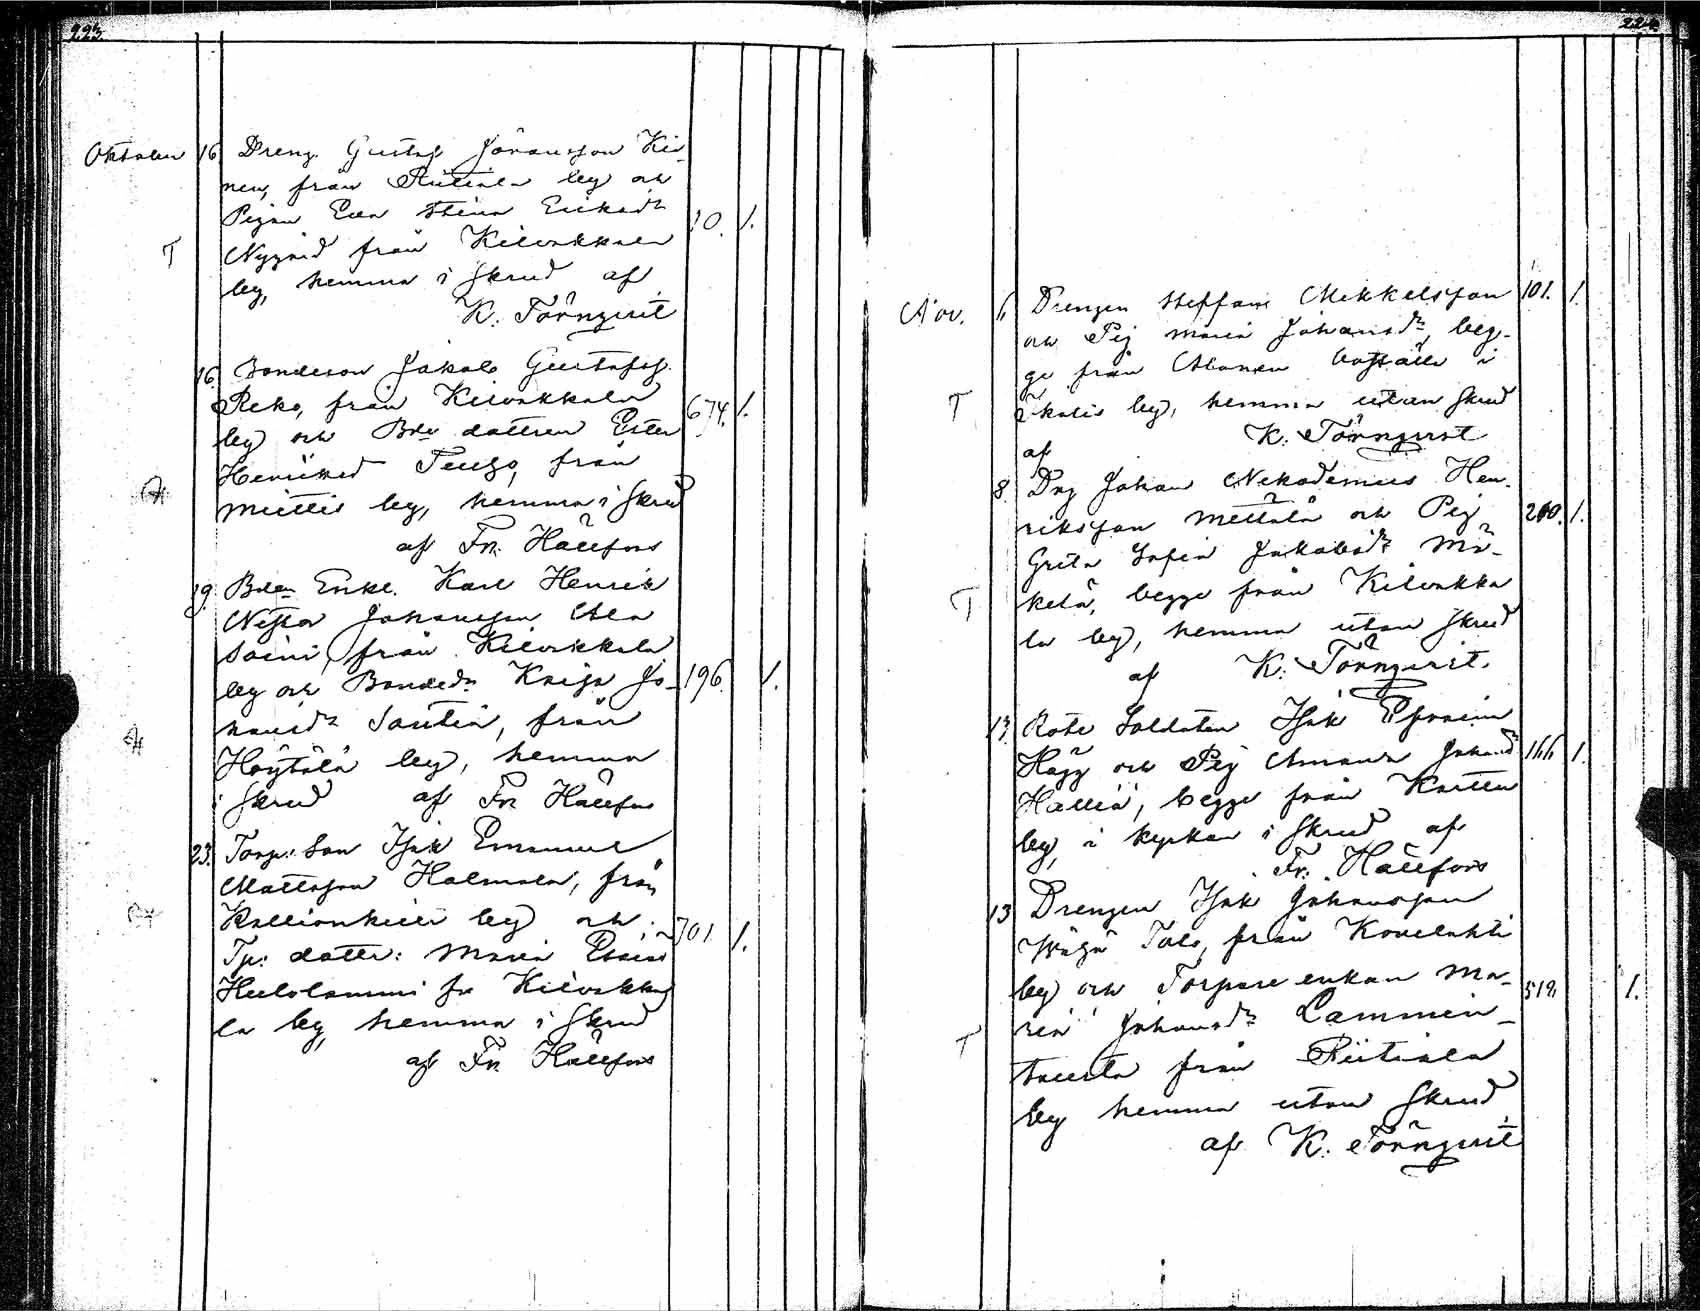 223
Oktober 16 Dreng. Gustaf Johansson Kii-
nen, från Riitiala by och
Pigan Eva Stina Eriksdr 10. 1.
T Nygård från Kilvakkala
by, hemma i skrud af
K. Törnqvist
16. Bondeson Jakob Gustafss.
Reko, från Kilvakkala 674. 1.
by och Bde dottren Ester
Henriksd från
Miettis by, hemma i skrud
af Fr. Hällfors
19. Bde Enkl. Karl Henrik
Nestor Johansson Ala
Soini, från Kilvakkala
by och Bondedr Kaisa Jo- 196. 1.
hansdr Santia, från
Höytölä by, hemma
i skrud af Fr. Hällfors
23. Torp. Son Isak Emanuel
Mattsson Halmela, från
Kallionkieli by och 701 1.
Tp: dotter: Maria
fr Kilvakka-
la by, hemma i skrud
af Fr. Hällfors
224
Nov. 6 Drengen Steffan Mikkelsson 101. 1.
och Pig Maria Johansdr, beg-
ge från boställe i
T by, hemma utan skrud
af K. Törnqvist
8 Drg Johan Nikodemus Hen-
riksson Mettälä och Pig 260. 1.
Greta Sofia Jakobsdr Mä-
T kelä, begge från Kilvakka
la by, hemma utan skrud
af K. Törnqvist.
13. Rote Soldaten Isak Efraim
Hägg och Pig Amanda Johansd 166 1.
Hallia, begge från Kartu
by, i kyrkan i skrud af
Fr. Hällfors
13 Drengen Isak Johansson
Wähä Talo, från Kovelahti
by och Torpare enkan Ma- 518. 1.
T ria Johansdr Lammin-
tausta från Riitiala
by hemma utan skrud
af K. Törnqvist